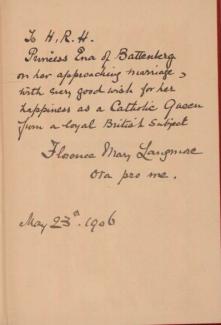 To H. R. H.
Princess Ena of Battenberg
on her approaching marriage,
with every good wish for her
happiness as a Catholic Queen
from a loyal British Subject
Florence Mary Langmore
ora pro me.
May 23rd. 1906